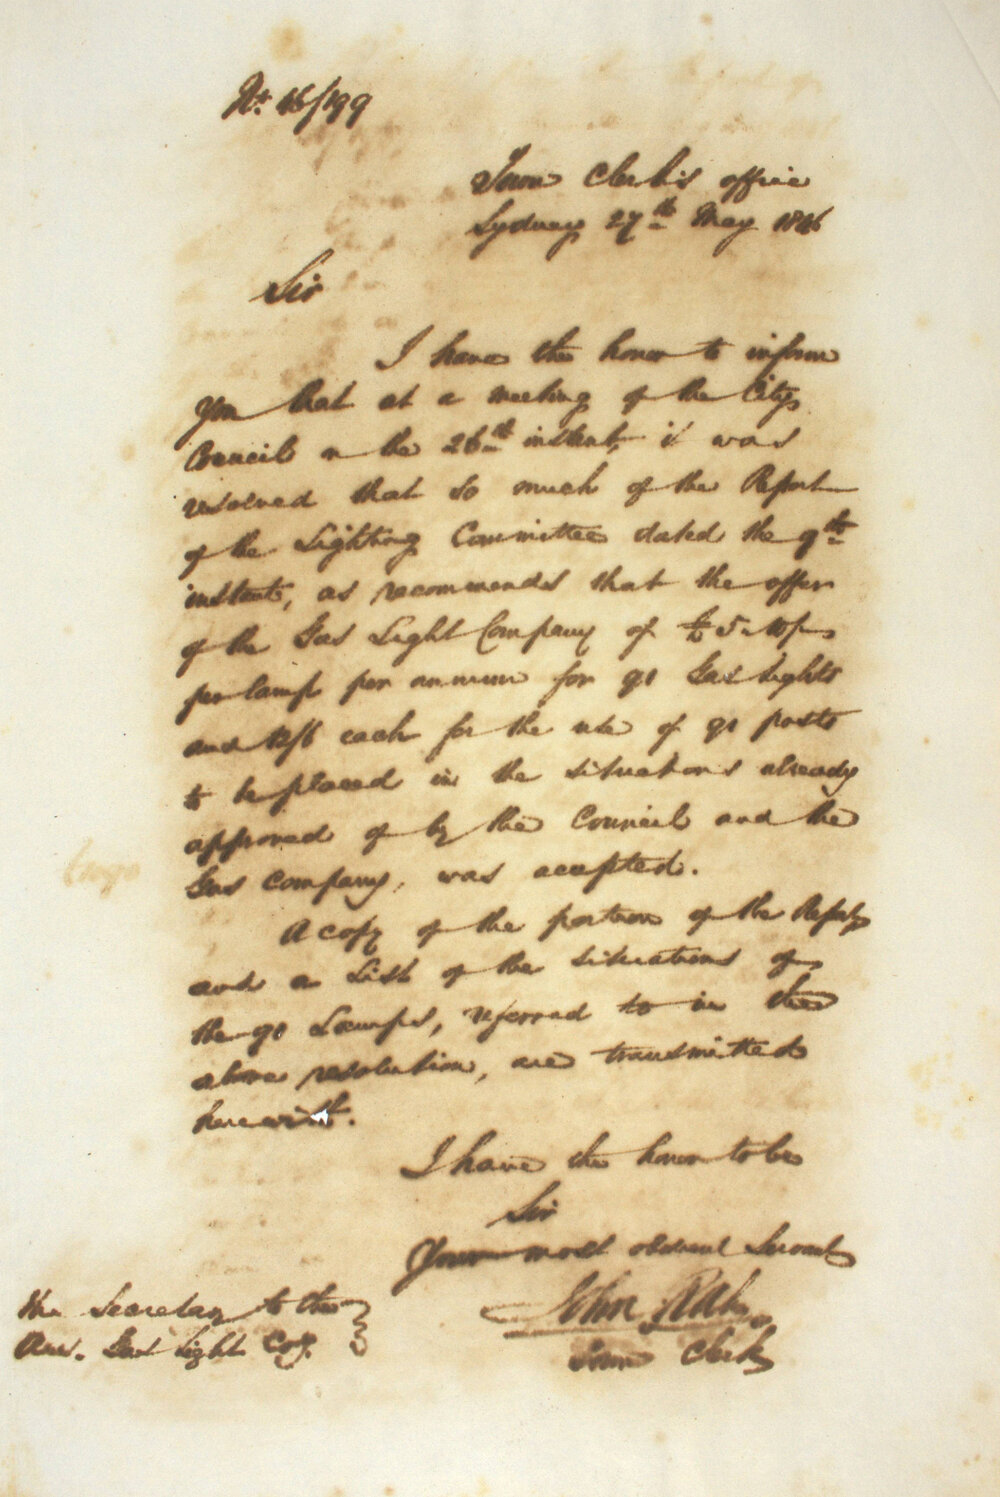 No. 46/199
Town Clerk's office
Sydney 27th May 1846
Sir
I have the honor to inform
you that at a meeting of the City
Council on the 26th instant, it was
resolved that so much of the Report
of the Lighting Committee dated the 9th
instant, as recommends that the offer
of the Gas Light Company of £5.10/-
per lamp per annum for 91 Gas Lights
and 12/6 each for the use of 91 posts
to be placed in the situations already
approved of by the Council and the
Gas Company, was accepted.
A copy of the portion of the Report
and a List of the situations of
the 91 Lamps, referred to in the
above resolution, are transmitted
herewith.
I have the honor to be
Sir
Your most obedient Servant
John
Town Clerk
The Secretary to the
Aus. Gas Light Coy.